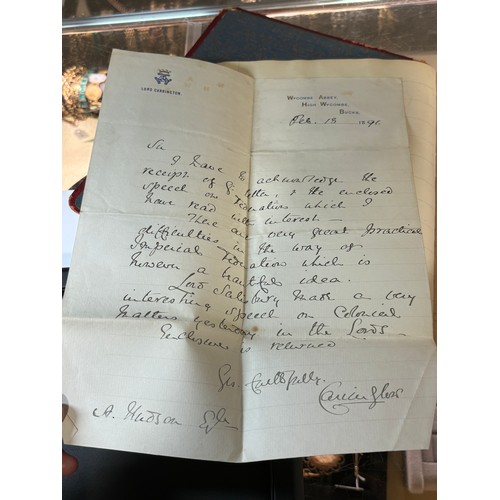 LORD CARRINGTON.
WYCOMBE ABBEY,
HIGH WYCOMBE,
BUCKS.
Feb. 13 1891
Sir
I have to acknowledge the
receipt of yr letter, & the enclosed
speech on Federation which I
have read with interest –
There are very great practical
difficulties in the way of
Imperial Federation which is
however a beautiful idea.
Lord Salisbury made a very
interesting speech on Colonial
Matters yesterday in the Lords –
Enclosure is returned
Yrs. faithfully
Carrington
A. Hudson Esqre